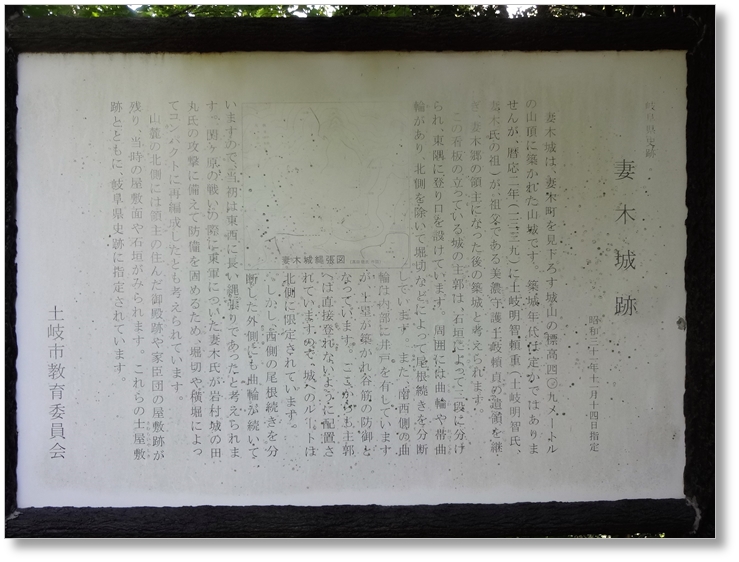 岐阜県史跡
妻木城跡
昭和三十一年十一月十四日指定
妻木城は、妻木町を見下ろす城山の標高四〇九メートル
の山頂に築かれた山城です。築城年代は定かではありま
せんが、暦応二年(一三三九)に土岐明智頼重(土岐明智氏、
妻木氏の祖)が、祖父である美濃守護土岐頼貞の遺領を継
ぎ、妻木郷の領主になった後の築城と考えられます。
この看板の立っている城の主郭は、石垣によって二段に分け
られ、東隅に登り口を設けています。周囲には曲輪や帯曲
輪があり、北側を除いて堀切などによって尾根続きを分断
しています。また、南西側の曲
輪は内部に井戸を有しています
が、土塁が築かれ谷筋の防御と
なっています。ここからも主郭
へは直接登れないように配置さ
れていますので、城へのルートは
北側に限定されています。
しかし、西側の尾根続きを分
断した外側にも曲輪が続いて
いますので、当初は東西に長い縄張りであったと考えられま
す。関ヶ原の戦いの際に東軍についた妻木氏が岩村城の田
丸氏の攻撃に備えて防備を固めるため、堀切や横堀によっ
てコンパクトに再編成したとも考えられています。
山麓の北側には領主の住んだ御殿跡や家臣団の屋敷跡が
残り、当時の屋敷面や石垣がみられます。これらの士屋敷
跡とともに、岐阜県史跡に指定されています。
土岐市教育委員会
妻木城縄張図